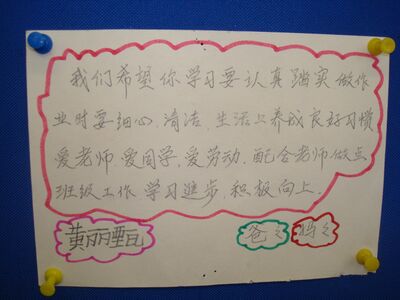 我们希望你学习要认真踏实做作
业时要细心、清洁、生活上养成良好习惯
爱老师、爱同学、爱劳动、配合老师做点
班级工作、学习进步、积极向上.
黄丽甄 爸爸 妈妈